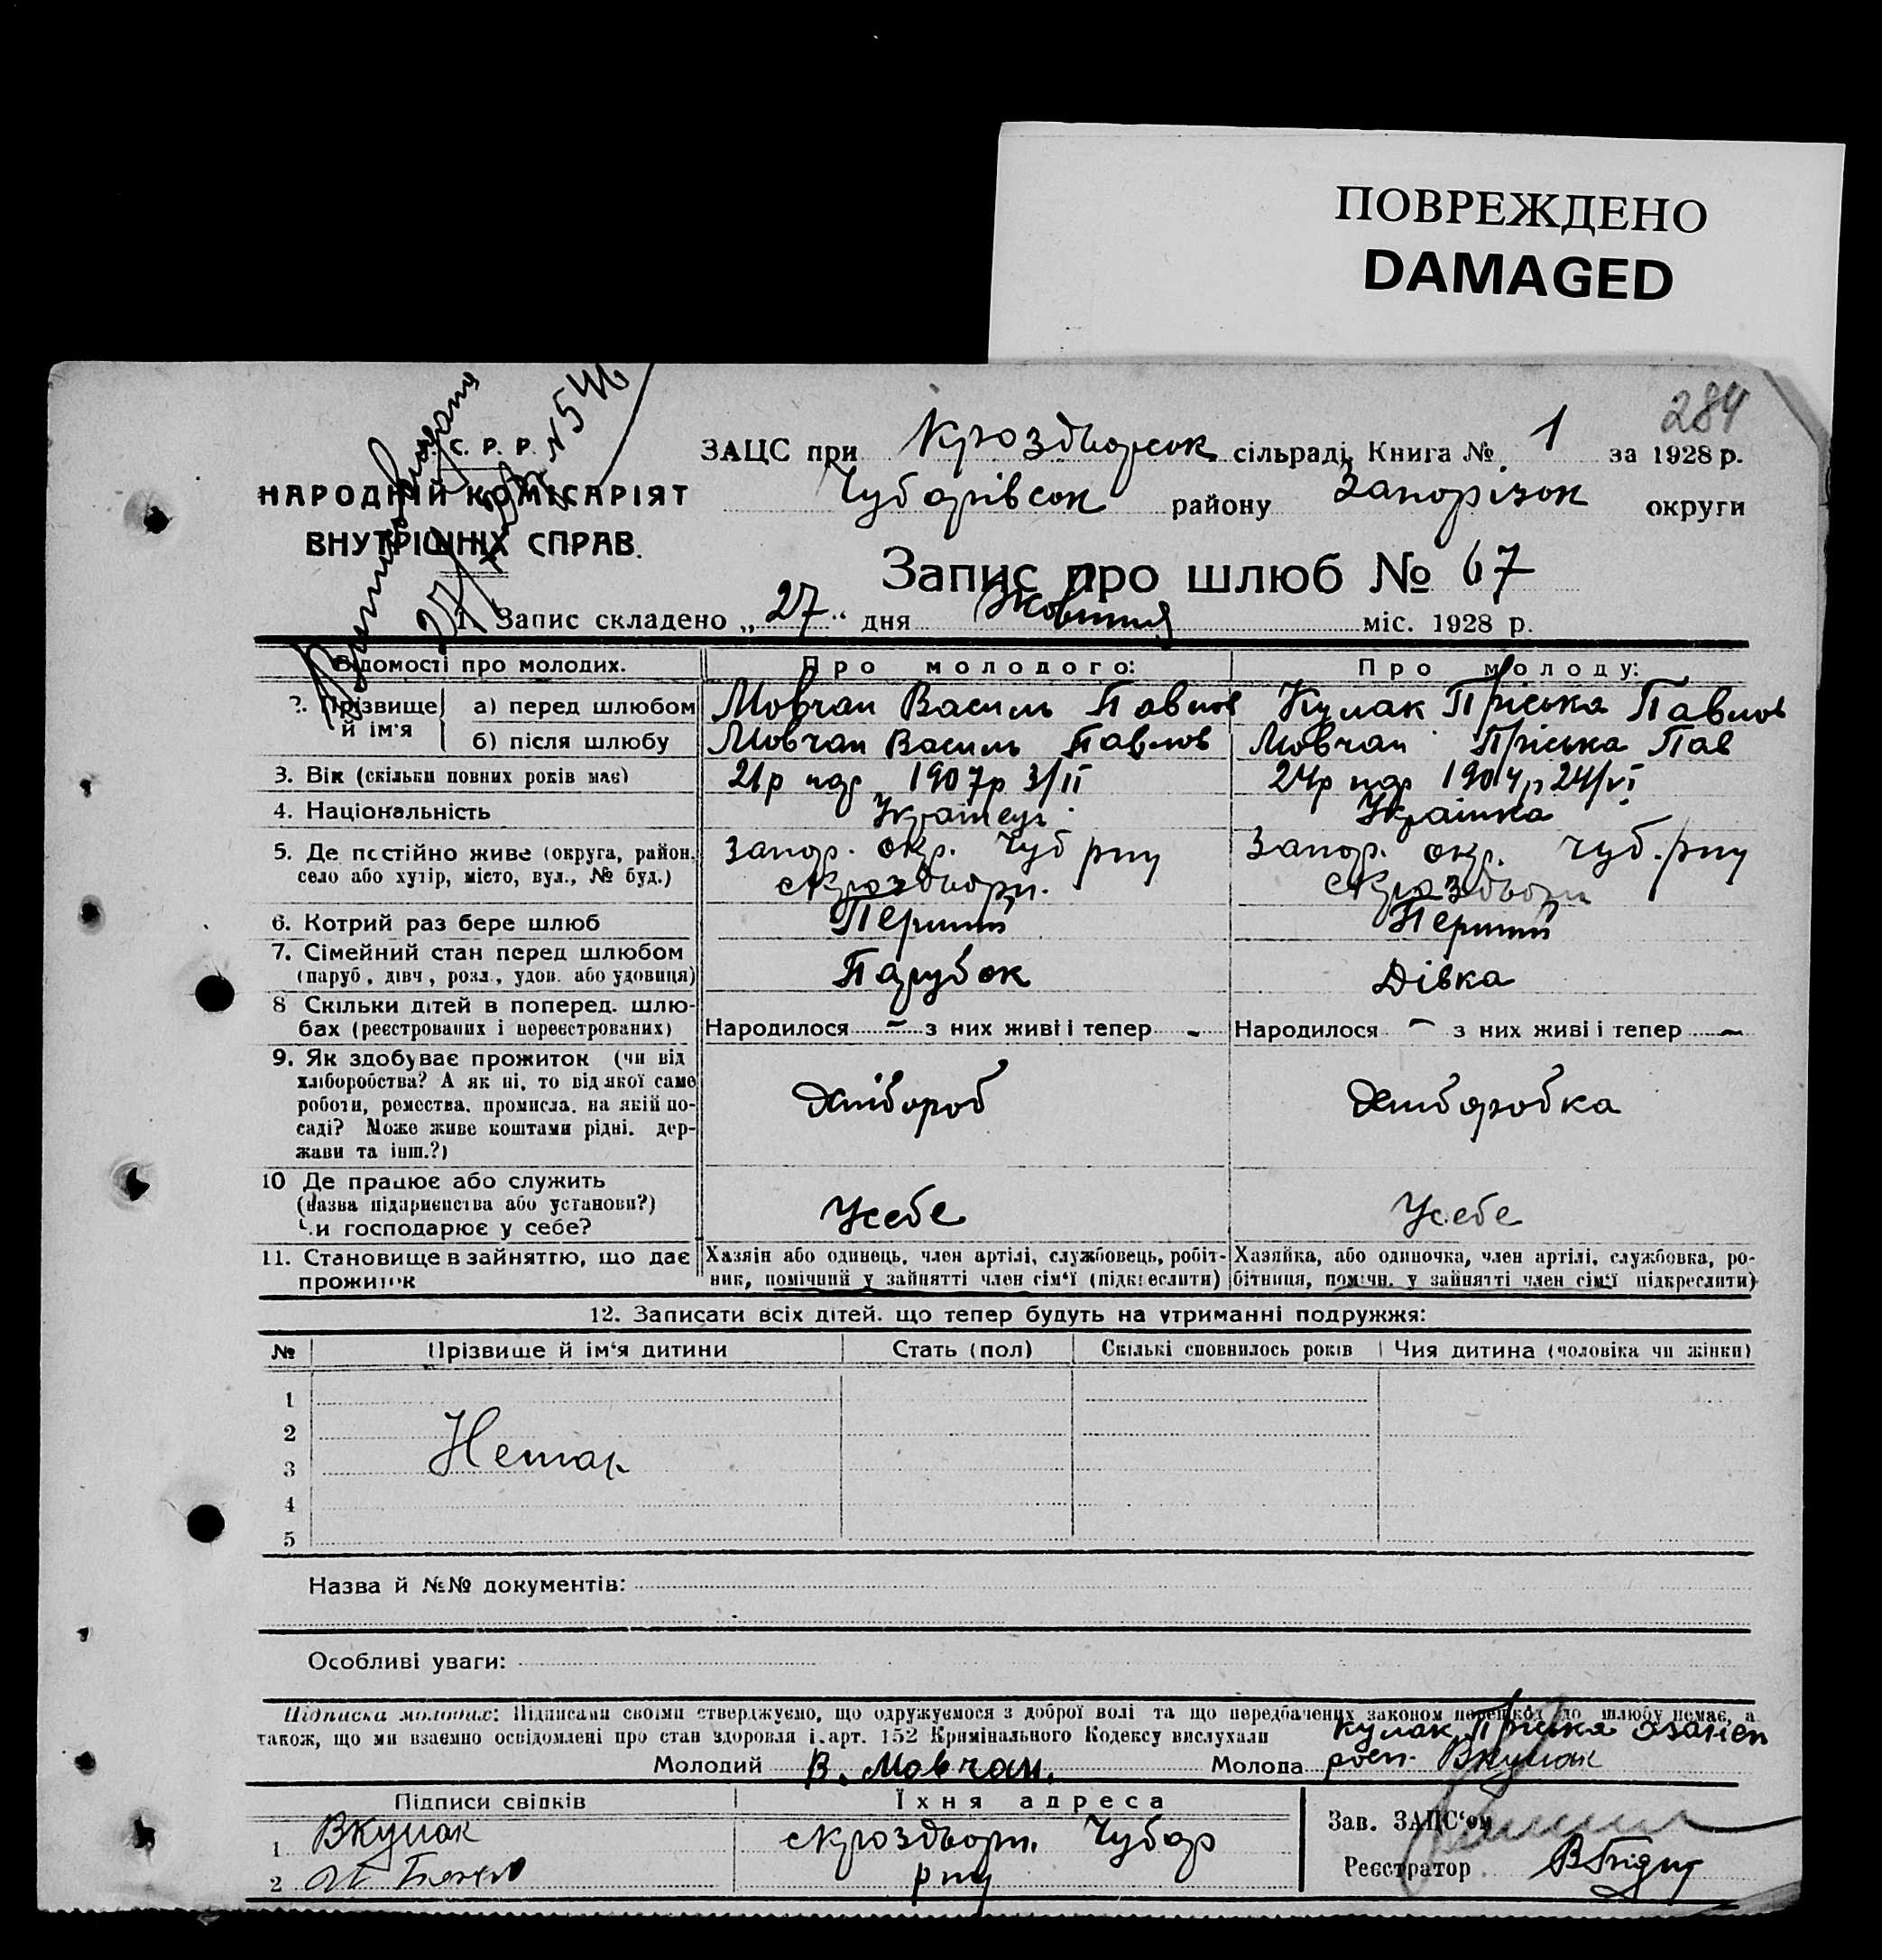 ПОВРЕЖДЕНО
DAMAGED
284
С. Р. Р.
НАРОДНІЙ КОМІСАРІЯТ
ВНУТРІШНІХ СПРАВ.
№ 546
ЗАЦС при Кроздворок сільраді, Книга № 1 за 1928 р.
Чубарівсок району Запорізок округи
Запис про шлюб № 67
1. Запис складено „27“ дня Жовтня міс. 1928 р.
Відомості про молодих. Про молодого: Про молоду:
2. Прізвище й ім'я
а) перед шлюбом Мовчан Василь Павлов Кулак Пріська Павлов
б) після шлюбу Мовчан Василь Павлов Мовчан Пріська Пав
3. Вік (скільки повних років має) 21р 1907р 3/II 24р 1904р 24/VI
4. Національність Українец Українка
5. Де постійно живе (округа, район, Запор. окр. Чуб рну Запор. окр. Чуб. рну
село або хутір, місто, вул., № буд.)
6. Котрий раз бере шлюб Перший Перший
7. Сімейний стан перед шлюбом Парубок Дівка
(паруб., дівч., розл., удов. або удовиця)
8 Скільки дітей в поперед. шлю-
бах (реєстрованих і нереєстрованих) Народилося - з них живі і тепер - Народилося - з них живі і тепер -
9. Як здобуває прожиток (чи від
хліборобства? А як ні, то від якої саме
роботи, ремества, промисла, на якій по- Хлібороб Хлиборобка
саді? Може живе коштами рідні, дер-
жави та інш.?)
10 Де працює або служить
(назва підприємства або установи?) Усебе Усебе
Чи господарює у себе?
11. Становище в зайняттю, що дає Хазяїн або одинець, член артілі, службовець, робіт- Хазяйка, або одиночка, член артілі, службовка, ро-
прожиток ник, помічний у зайнятті член сім'ї (підкреслити) бітниця, помічн. у зайнятті член сім'ї підкреслити)
12. Записати всіх дітей, що тепер будуть на утриманні подружжя:
№ Прізвище й ім'я дитини Стать (пол) Скількі сповнилось років Чия дитина (чоловіка чи жінки)
1
2
3 Немає
4
5
Назва й №№ документів:
Особливі уваги:
Підписка молодих: Підписами своїми стверджуємо, що одружуємося з доброї волі та що передбачених законом перешкод до шлюбу немає, а
також, що ми взаємно освідомлені про стан здоровля і арт. 152 Кримінального Кодексу вислухали Кулак Пріська
Молодий В. Мовчан. Молода ВКулак
Підписи свідків Їхня адреса
1 ВКулак Чубар
2 рну
Зав. ЗАЦС'ом
Реєстратор